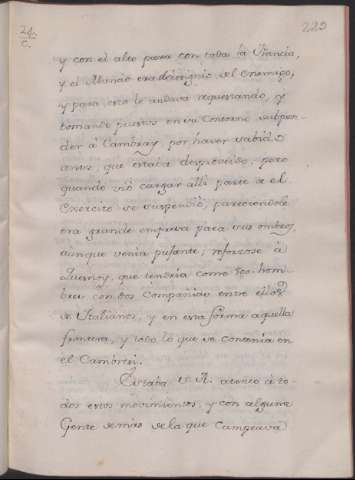 24.
C.
225
y con el alto para con toda la Francia,
y el Mundo era designio del enemigo,
y para esto le andava requestando, y
tomando puestos en su contorno
der à Cambray, por haver sabido
antes, que estaba desproveido; pero
quando vio cargar alli parte de el
Exercito se suspendio, pareciendole
era grande empresa para sus ombros,
aunque venia pujante; reforzose à
que tendria como 800 hom-
bres con dos Compañias entre ellos
de Italianos; y en esta forma aquella
frontera, y todo lo que se contenia en
el Cambresi.
Estaba S. A. atento à to-
dos estos movimientos, y con alguna
Gente demas de la que Campeava